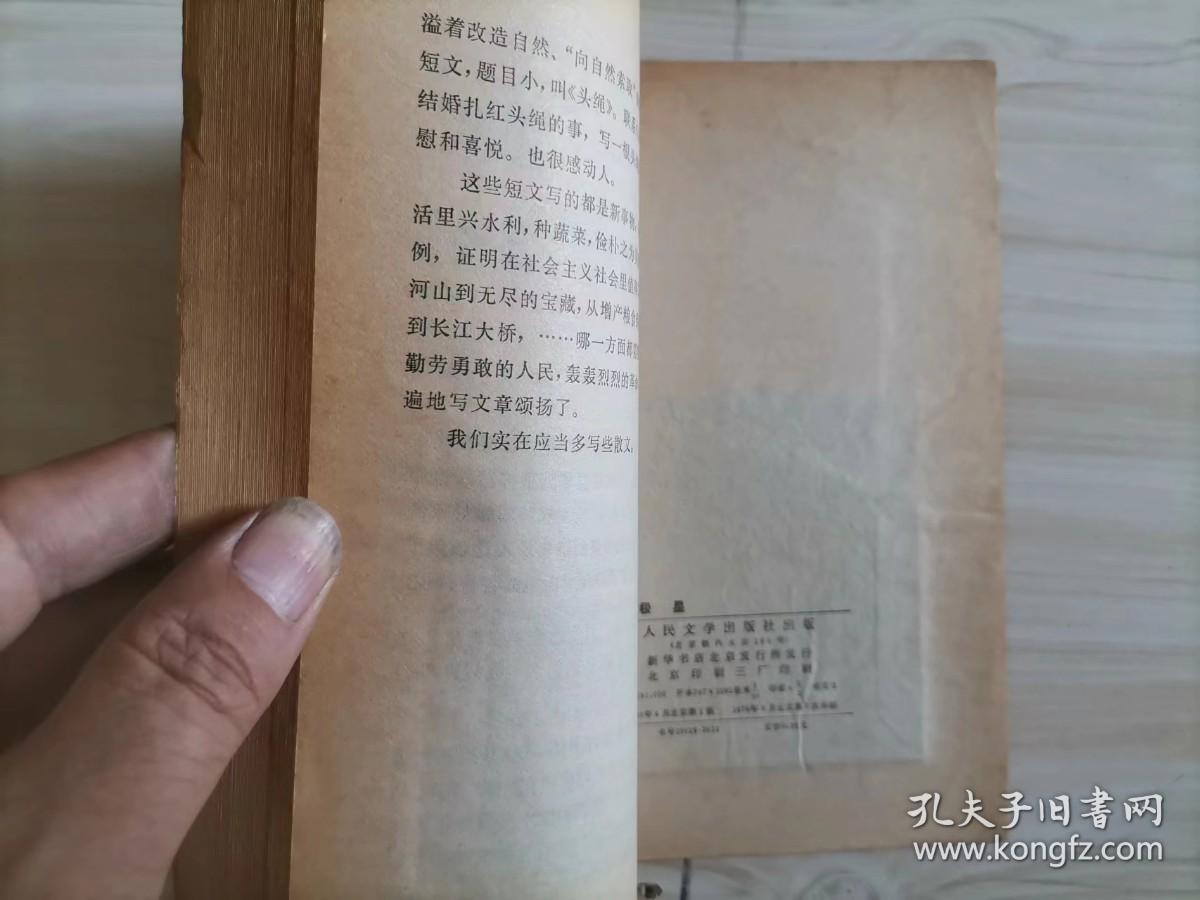 溢着改造自然、“向自然索取”
短文，题目小，叫《头绳》。联系
结婚扎红头绳的事，写一根头
慰和喜悦。也很感动人。
这些短文写的都是新事物，
活里兴水利，种蔬菜，俭朴之为
例，证明在社会主义社会里值
河山到无尽的宝藏，从增产粮食
到长江大桥，……哪一方面都
勤劳勇敢的人民，轰轰烈烈的革
遍地写文章颂扬了。
我们实在应当多写些散文，
极星
人民文学出版社出版
新华书店北京发行所发行
北京印刷三厂印刷
孔夫子旧书网
www.kongfz.com